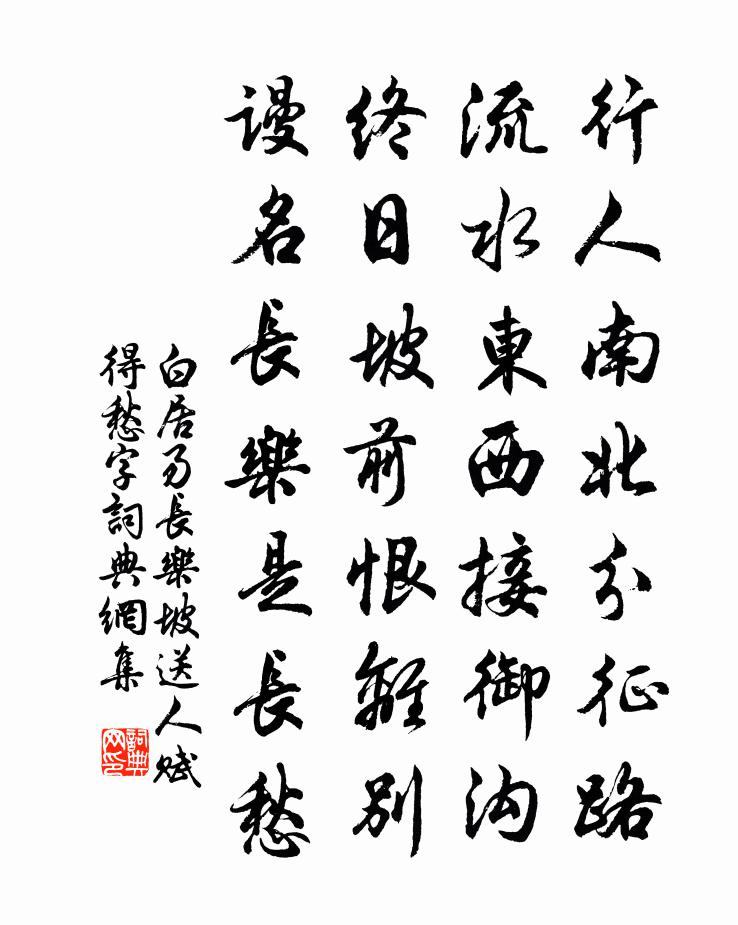 行人南北分征路
流水東西接御沟
终日坡前恨離别
谩名長樂是長愁
白居易長樂坡送人赋
得愁字詞典網集
詞典
网印